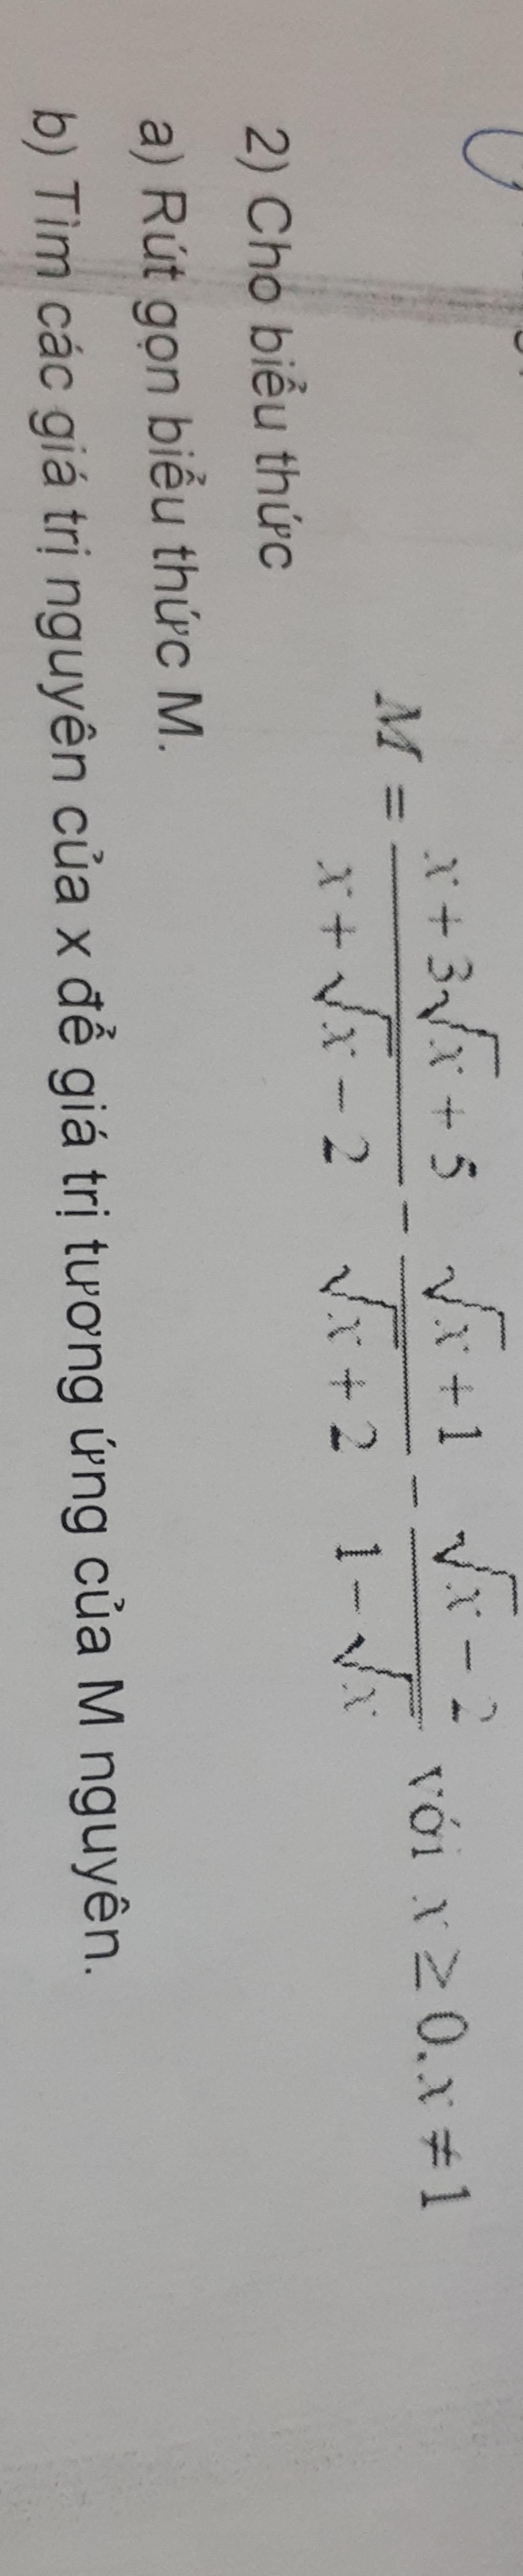 2) Cho biểu thức
M = \frac{x + 3\sqrt{x} + 5}{x + \sqrt{x} - 2} - \frac{\sqrt{x} + 1}{\sqrt{x} + 2} - \frac{\sqrt{x} - 2}{1 - \sqrt{x}} với x ≥ 0, x ≠ 1
a) Rút gọn biểu thức M.
b) Tìm các giá trị nguyên của x để giá trị tương ứng của M nguyên.